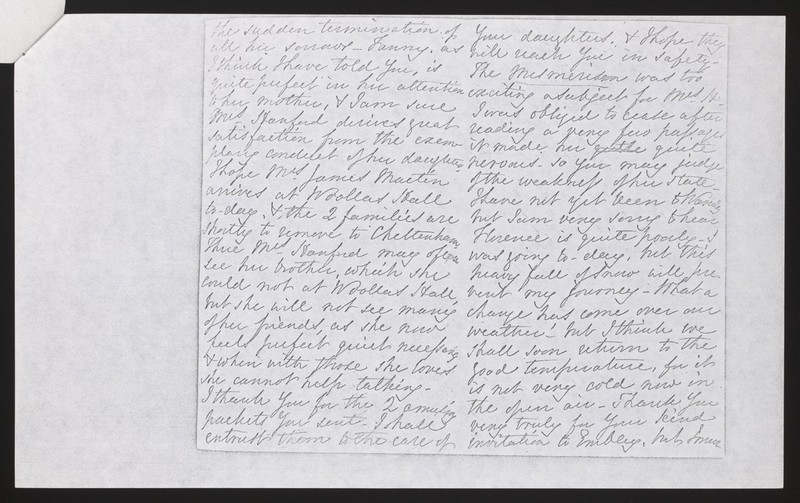 the sudden termination of
all her sorrows - Fanny, as
I think I have told you, is
quite perfect in her attention
to her mother, & I am sure
Mrs Hanford derives great
satisfaction from the exem-
plary conduct of her daughter,
I hope Mrs James Martin
arrives at Woollas Hall
to-day, & the 2 families are
shortly to remove to Cheltenham,
there Mrs Hanford may often
see her brother, which she
could not at Woollas Hall,
but she will not see many
of her friends, as she now
feels perfect quiet necessary
& when with those she loves
she cannot help talking -
I thank You for the 2 amusing
packets You sent - I shall
entrust them to the care of
Your daughters, & I hope they
will reach You in safety -
The Mesmerism was too
exciting a subject for Mrs H-
I was obliged to cease after
reading a very few passages
it made her quite quite
nervous. So You may judge
of the weakness of her state -
I have not yet been to
but I am very sorry to hear
Florence is quite poorly - I
was going to-day, but this
heavy fall of snow will pre-
vent my Journey - What a
change has come over our
weather! but I think we
shall soon return to the
good temperature, for it
is not very cold now in
the open air - Thank You
very truly for Your kind
invitation to Embley, but I must